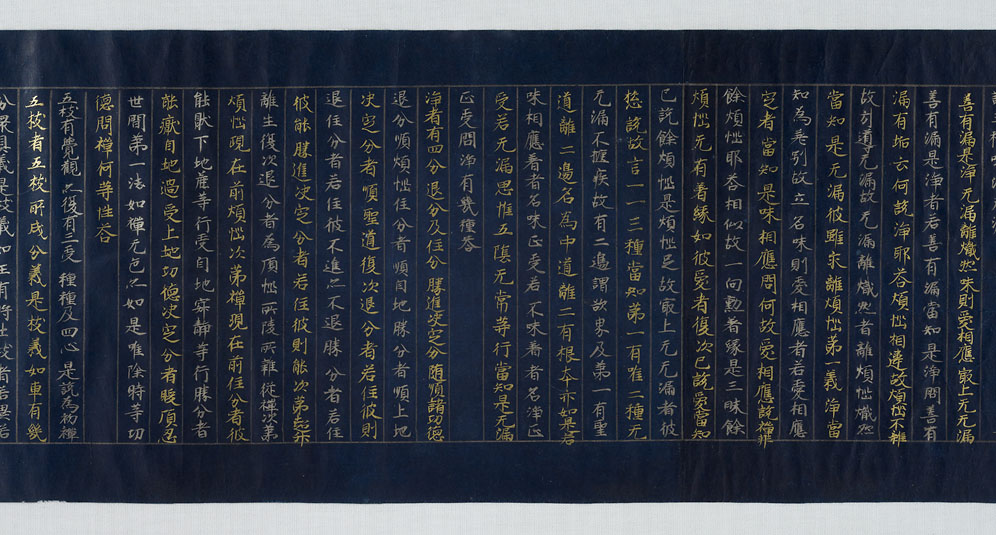 善有漏是淨无漏離熾然味則愛相應冣上无无漏
善有漏是淨者若善有漏當知是淨問善有
漏有垢云何説淨耶荅煩惱相違故煩惱不雜
故引導无漏故无漏離熾然者離煩惱熾然
當知是无漏彼雖求離煩惱第一義淨當
知為牽引故立名味則愛相應者若愛相應
定者當知是味相應問何故愛相應説禪非
餘煩惱耶荅相似故一向懃者緣是三昧餘
煩惱无有着緣如彼愛者復次已説愛當知
已説餘煩惱是煩惱足故冣上无无漏者彼
无漏不捷疾故有二邊謂欲界及第一有聖
道離二邊名為中道離二有根本亦如是若
惣説故言一一三種當知第一有唯二種无
味相應着者名味正受若不味着者名淨正
受若无漏思惟五陰无常等行當知是无漏
正受問淨有幾種荅
淨者有四分退分及住分勝進决定分随順諸功德
退分順煩惱住分者順自地勝分者順上地
决定分者順聖道復次退分者若住彼則
退住分者若住彼不進亦不退勝分者若住
彼能勝進决定分者若住彼則能次第
離生復次退分者為煩惱所陵所難從禪次第
煩惱現在前煩惱次第禪現在前住分者彼
能猒下地麁等行受自地寂靜等行勝分者
能猒自地過受上地功德决定分者暖頂忍
世間第一法如禪无色亦如是唯除時等功
德問禪何等性荅
五枝有覺觀亦復有三受種種及四心是説為初禪
五枝者五枝所成分義是枝義如車有幾